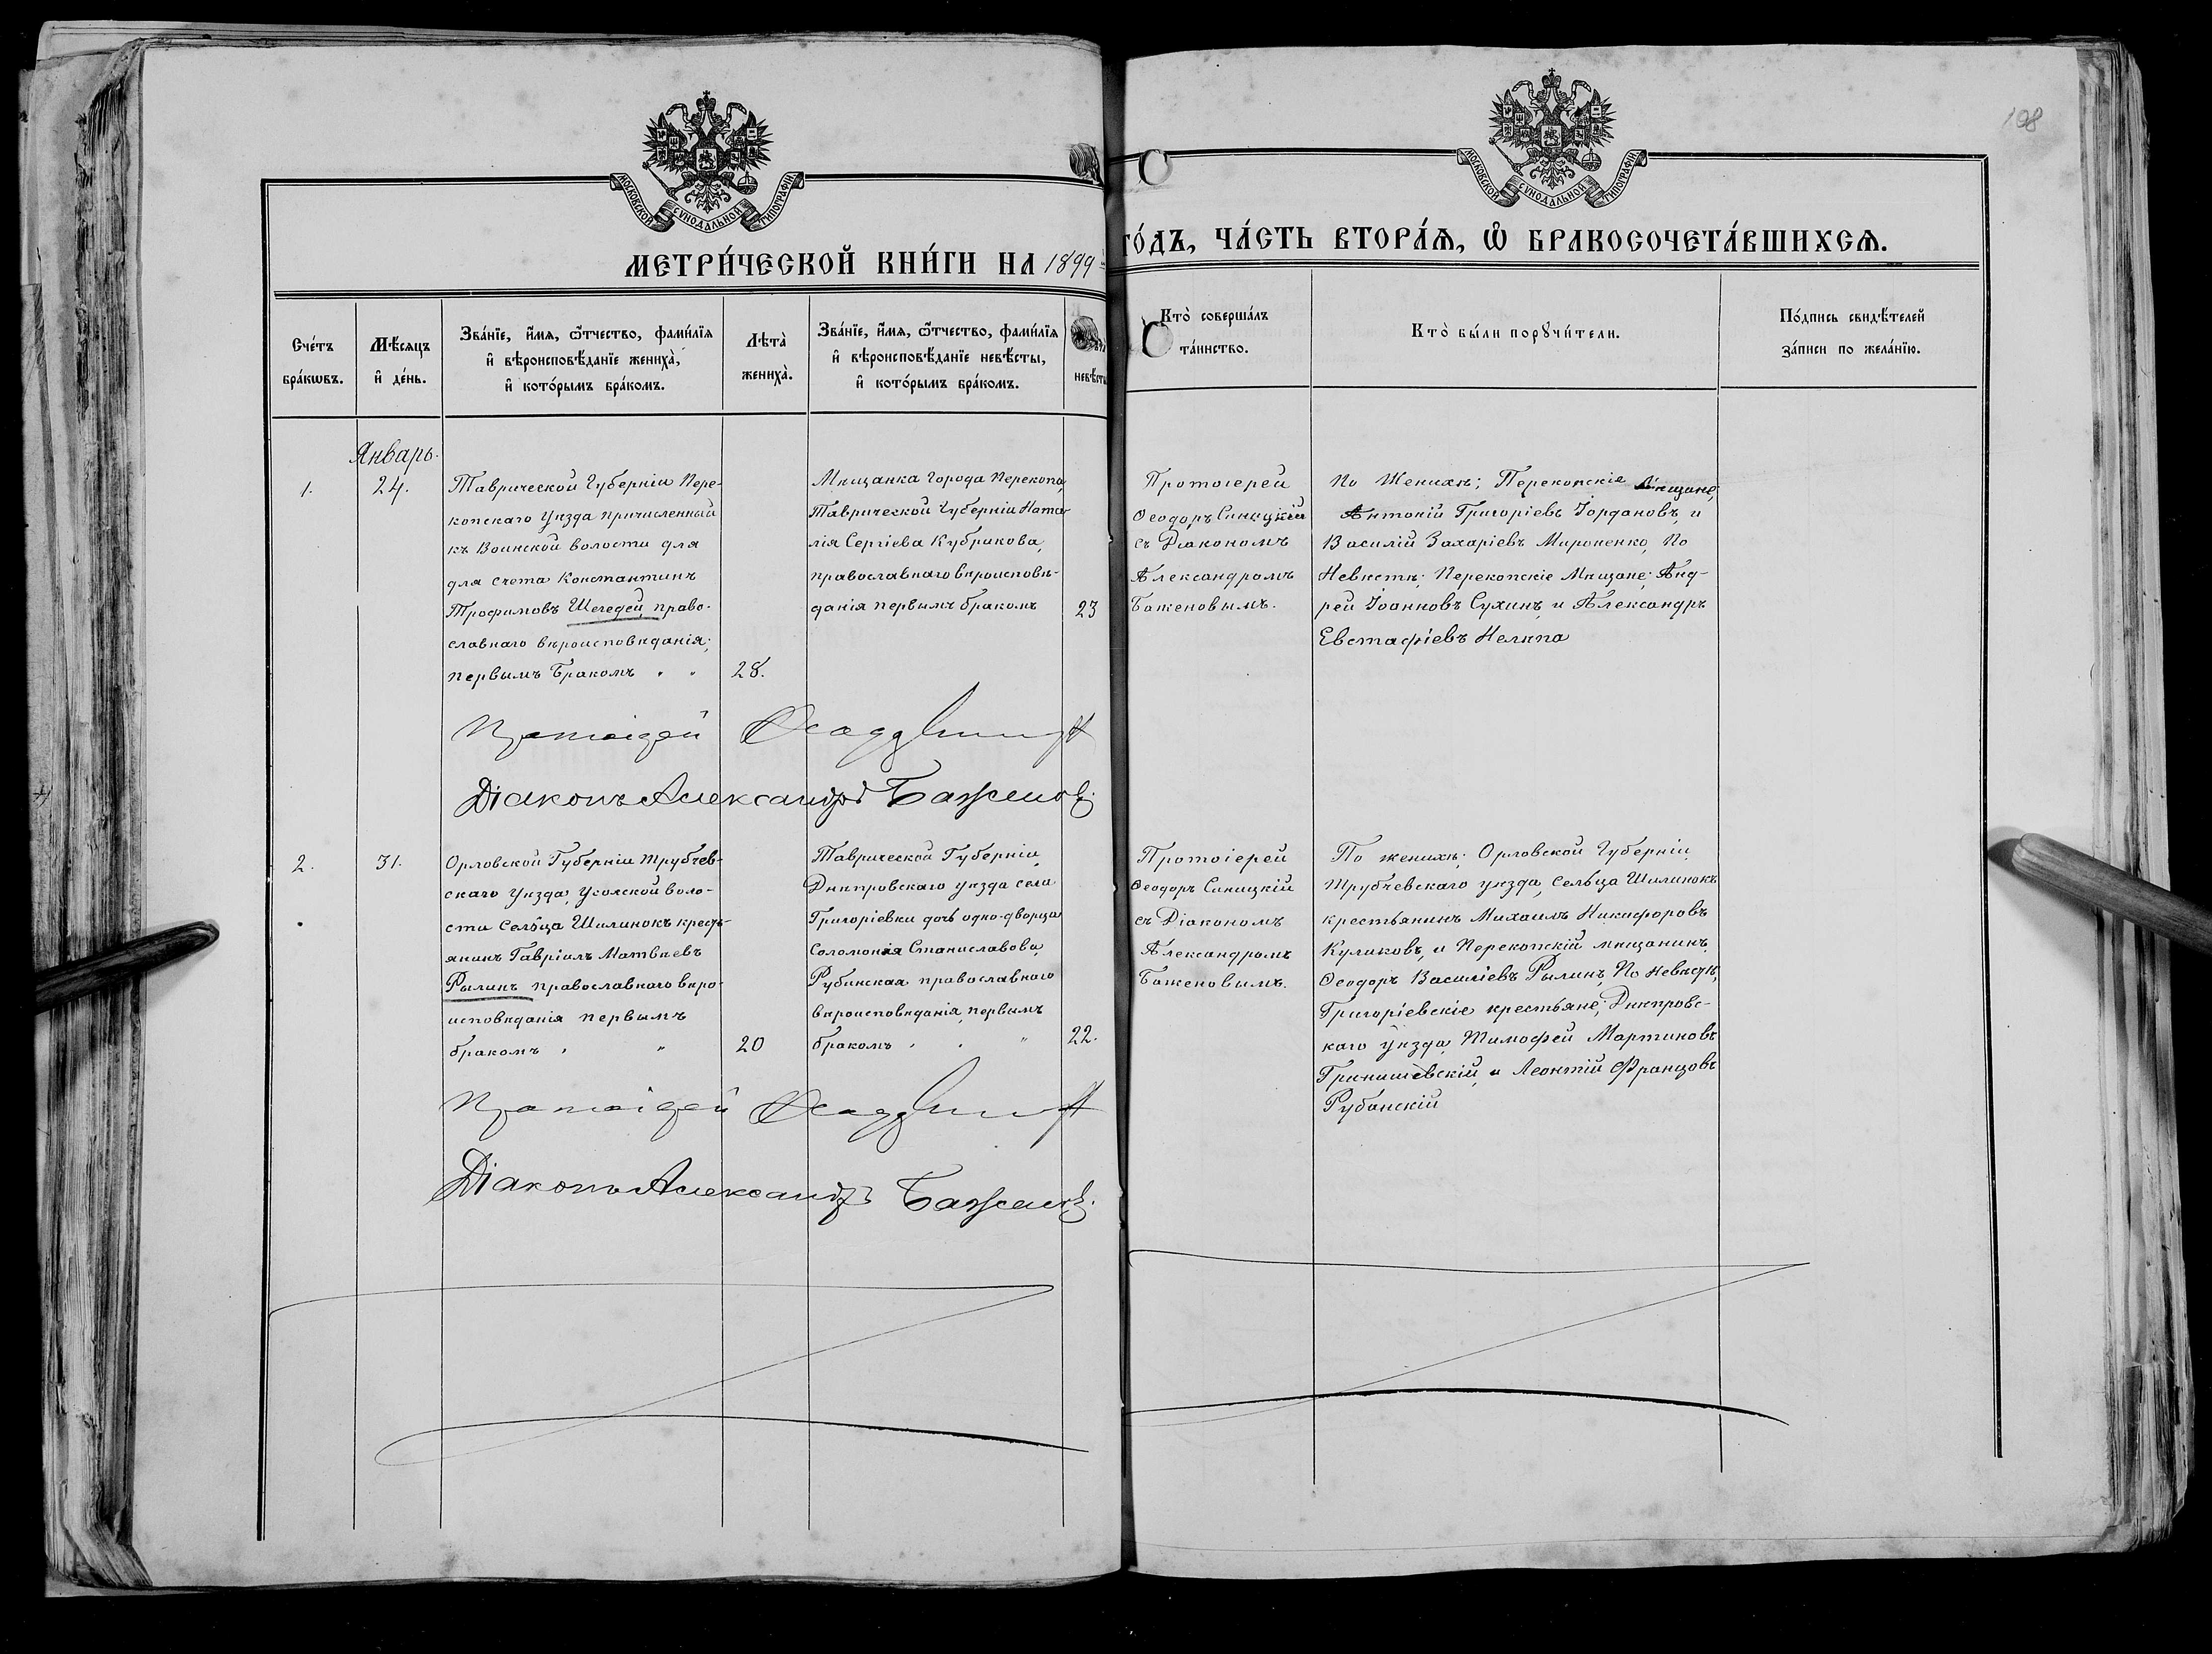 108
МОСКОВСКОЙ СУНОДАЛЬНОЙ ТИПОГРАФІИ
МОСКОВСКОЙ СУНОДАЛЬНОЙ ТИПОГРАФІИ
МЕТРИ́ЧЕСКОЙ КНИ́ГИ НА 1899
ГО́ДЪ, ЧА́СТЬ ВТОРА́Ѧ, Ѡ҆ БРАКОСОЧЕТА́ВШИХСѦ.
Сче́тъ
бра́кωвъ.
Мѣ́сѧцъ
и҆ де́нь.
Зва́нїе, и҆́мѧ, ѻ҆́тчество, фами́лїѧ
и҆ вѣроисповѣ́данїе жениха̀,
и҆ кото́рымъ бра́комъ.
Лѣта̀
жениха̀.
Зва́нїе, и҆́мѧ, ѻ҆́тчество, фами́лїѧ
и҆ вѣроисповѣ́данїе невѣ́сты,
и҆ кото́рымъ бра́комъ.
невѣ́сты
Кто̀ соверша́лъ
та́инство.
Кто̀ бы́ли порꙋчи́тели.
По́дпись свидѣ́телей
за́писи по жела́нїю.
Январь.
1.
24.
Таврической Губерніи Пере-
копскаго Уѣзда причисленный
къ Воинской волости для
для счета Константинъ
Трофимовъ Шегедей, право-
славнаго вѣроисповѣданія;
первымъ бракомъ
28.
Мѣщанка города Перекопа,
Таврической Губерніи Ната-
лія Сергіева Кубракова,
православнаго вѣроисповѣ-
данія первымъ бракомъ
23
Протоіерей
Ѳеодоръ Синицкій
съ Діакономъ
Александромъ
Баженовымъ.
По Женихѣ; Перекопскіе Мѣщане;
Антоній Григоріевъ Іордановъ, и
Василій Захаріевъ Мироненко, По
Невѣстѣ; Перекопскіе Мѣщане; Анд-
рей Іоанновъ Сухинъ, и Александръ
Евстафіевъ Нелѣпа
Протоіерей
Діаконъ Александръ Баженовъ.
2.
31.
Орловской Губерніи Трубчев-
скаго Уѣзда, Усохской воло-
сти Сельца Шилинокъ кресть-
янинъ Гавріилъ Матвѣевъ
Рылинъ православнаго вѣро-
исповѣданія первымъ
бракомъ
20
Таврической Губерніи,
Днѣпровскаго уѣзда села
Григоріевки дочь одно-дворца
Соломонія Станиславова,
Рубинская православнаго
вѣроисповѣданія, первымъ
бракомъ
22.
Протоіерей
Ѳеодоръ Синицкій
съ Діакономъ
Александромъ
Баженовымъ.
По женихѣ; Орловской Губерніи
Трубчевскаго уѣзда, Сельца Шилинокъ
крестьянинъ Михаилъ Никифоровъ
Куликовъ, и Перекопскій мѣщанинъ
Ѳеодоръ Василіевъ Рылинъ, По Невѣстѣ,
Григоріевскіе крестьяне; Днѣпровс-
каго уѣзда, Тимофей Мартиновъ
Гринишевскій, и Леонтій Францовъ
Рубанскій
Протоіерей
Діаконъ Александръ Баженовъ.